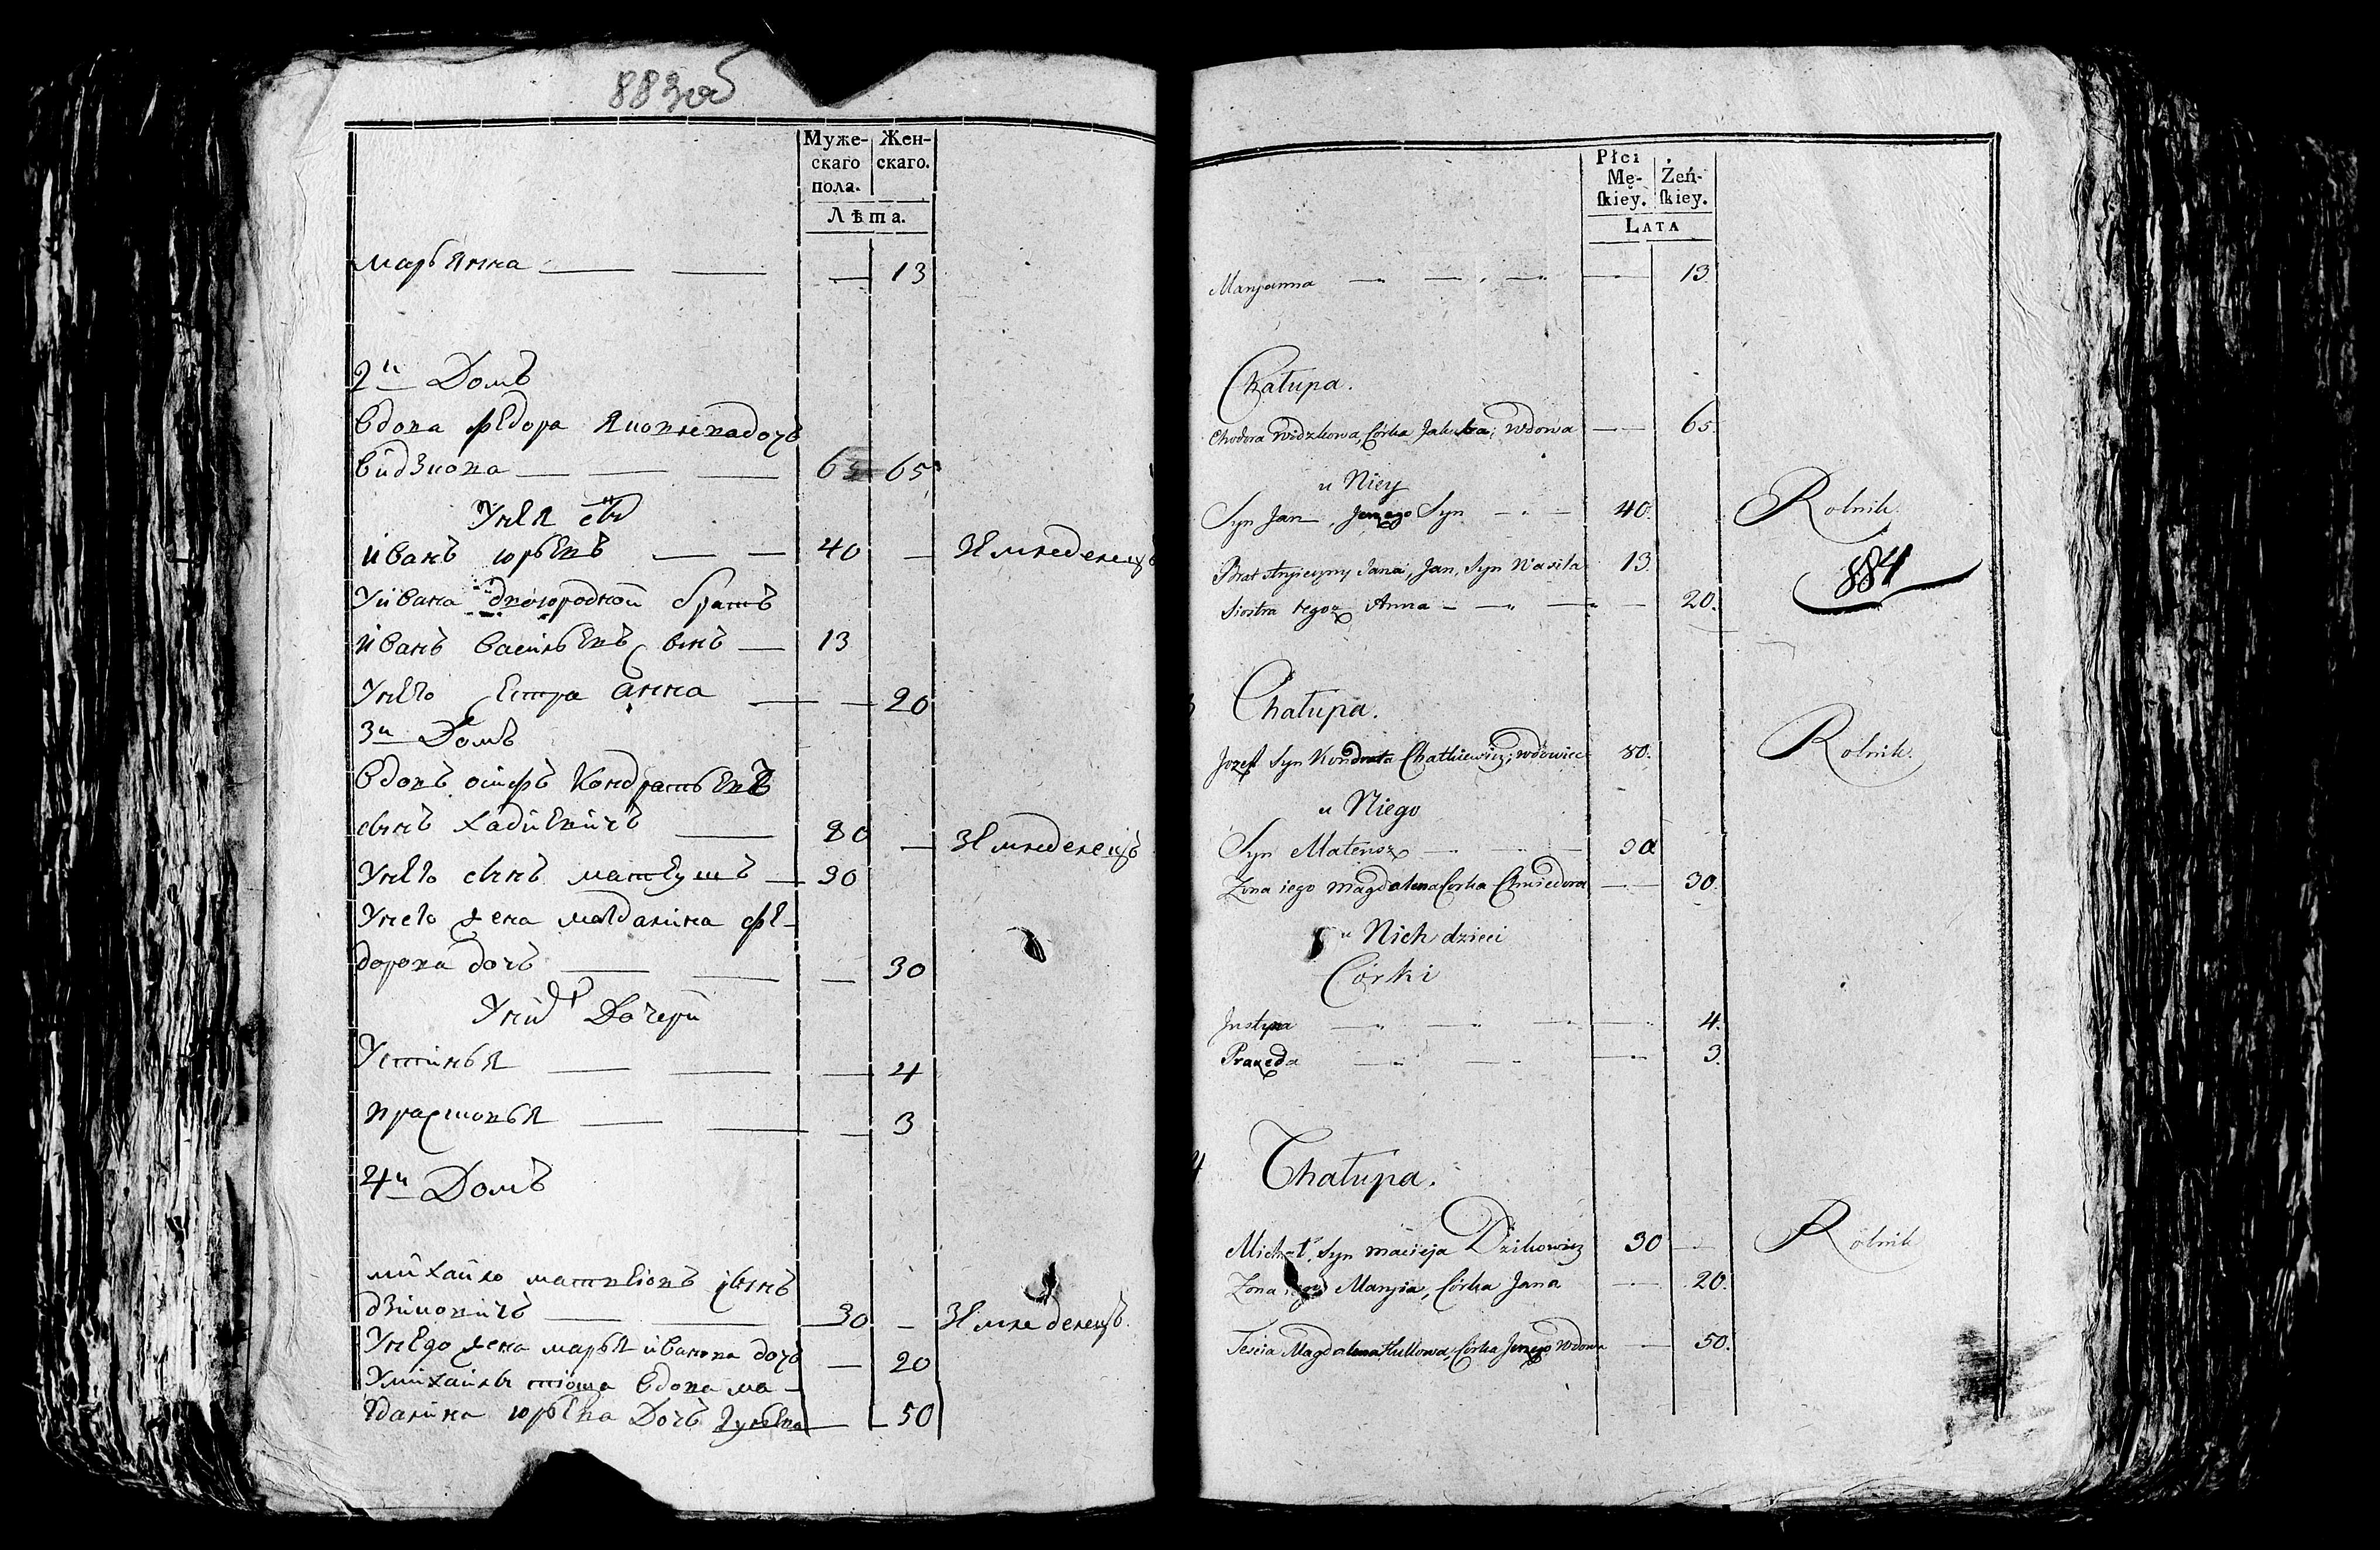 883об
Муже-скаго пола. Жен-скаго.
Лѣта.
марьянна — — — 13
2й Домъ
вдова федора якоvлеvадочь
видзкова — — — 65 65
Унея снъ
иванъ юрьевъ — — 40 — Земледелецъ
Уивана двоюродной братъ
иванъ васильевъ снъ — 13
Унего сестра анна — — 20
3й Домъ
вдовъ осипъ кондратьевъ
сынъ хадкевичъ — 80 — Земледелецъ
Унего сынъ матеушъ — 30
Унего жена магдалина фе-
дорова дочь — — — 30
Униχъ Дочери
Устинья — — — 4
прасковья — — — 3
4й Домъ
михайло матвеевъ сынъ
дзиковичъ — — 30 — Земледелецъ.
Унего жена марья иванова дочь — 20
Умихайлы тіоща вдова ма-
гдалина юрьева Дочь — — 50
Płci Mę-ſkiey. Żeń-ſkiey.
LATA
Maryanna — — — — 13
Chałupa.
Chodora Widzkowa, Córka Jakuba, Wdowa — 65.
u Niey
Syn Jan, Jerzego Syn — — 40. Rolnik.
Brat stryieczny Jana, Jan, Syn Wasila 13.
884
Siostra tegoż Anna — — — — 20.
3 Chałupa.
Jozef Syn Kondrata Chatkiewicz, wdowiec 80. Rolnik.
u Niego
Syn Mateusz — — — 30
Zona iego Magdalena Corka Chwiedora — 30.
u Nich dzieci
Córki
Justyna — — — — 4.
Praxeda — — — 3.
4 Chałupa.
Michał, Syn Macieja Dzikowicz 30 — Rolnik
Zona iego Maryia, Córka Jana — 20.
Teścia Magdalena Kulowa, Córka Jerzego Wdowa — 50.